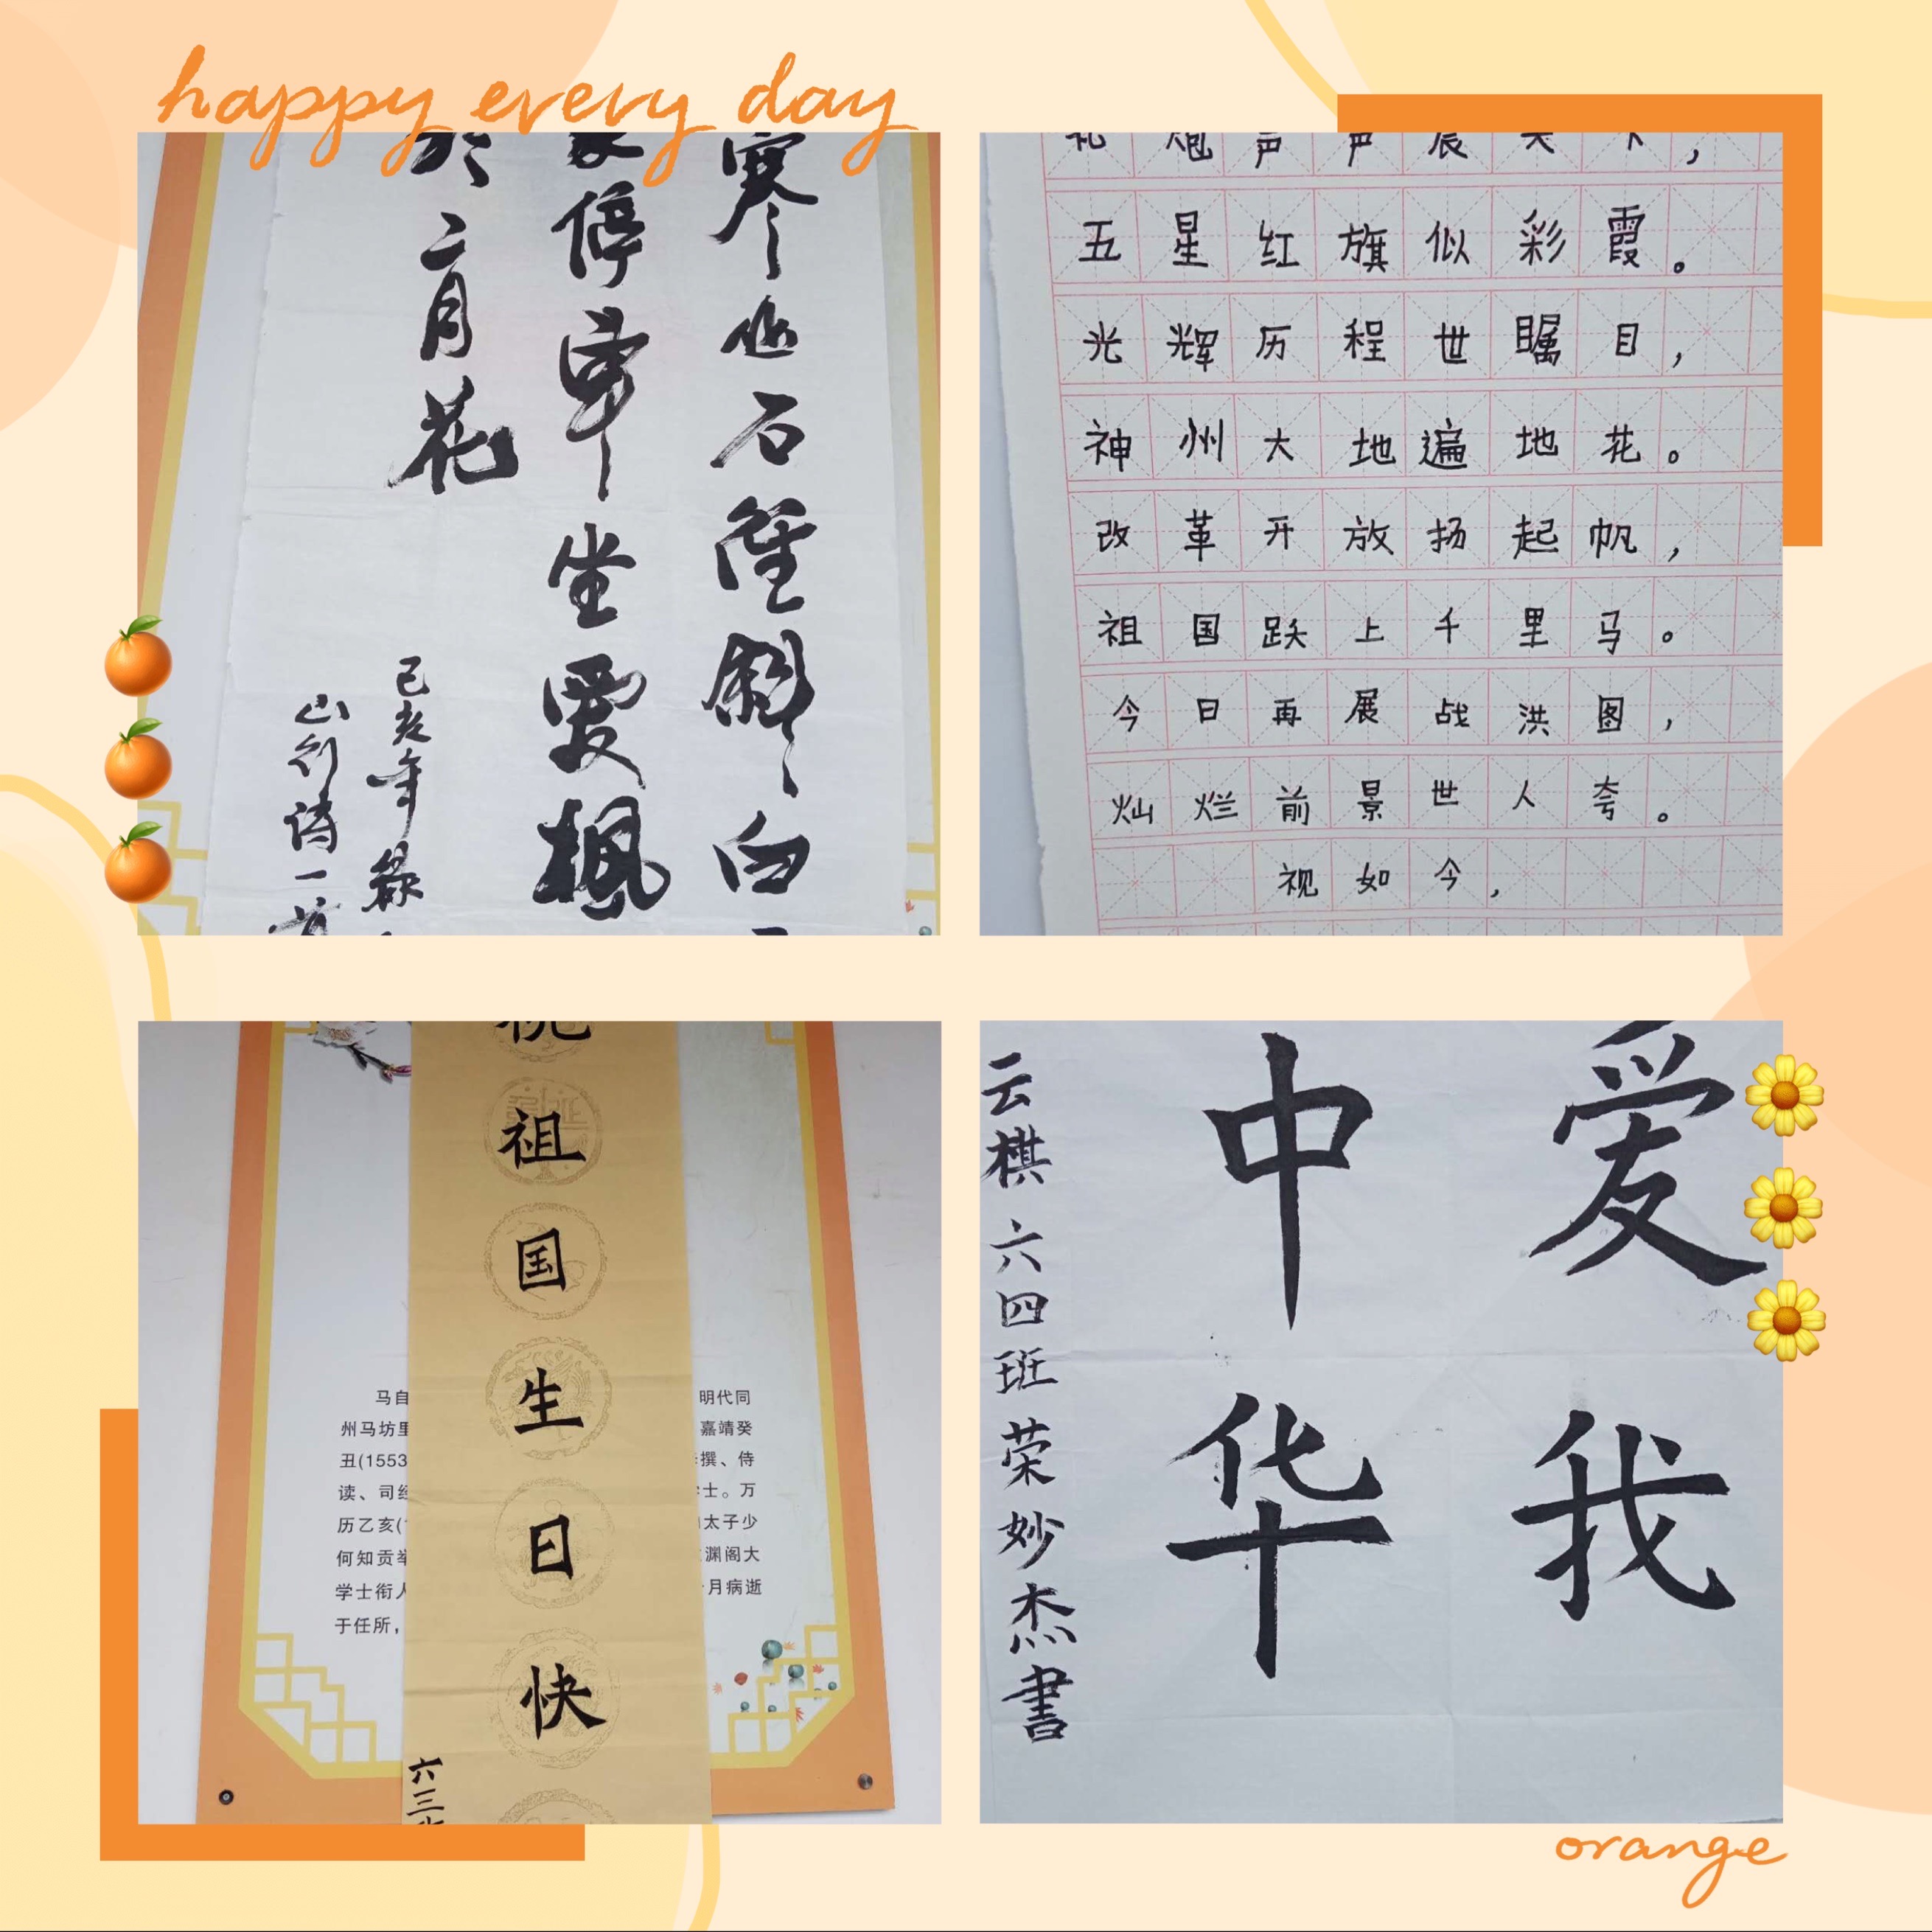 happy every day
寒山石徑斜白
停車坐愛楓
於二月花
己亥年錄
山行詩一首
五星红旗似彩霞。
光辉历程世瞩目，
神州大地遍地花。
改革开放扬起帆，
祖国跃上千里马。
今日再展战洪图，
灿烂前景世人夸。
视如今，
祝祖国生日快
六三
马自
明代同
州马坊里
嘉靖癸
丑(1553
撰、侍
读、司经
士。万
历乙亥(
太子少
何知贡举
渊阁大
学士衔入
月病逝
于任所，
爱我
中华
云棋 六四班 荣妙杰書
orange